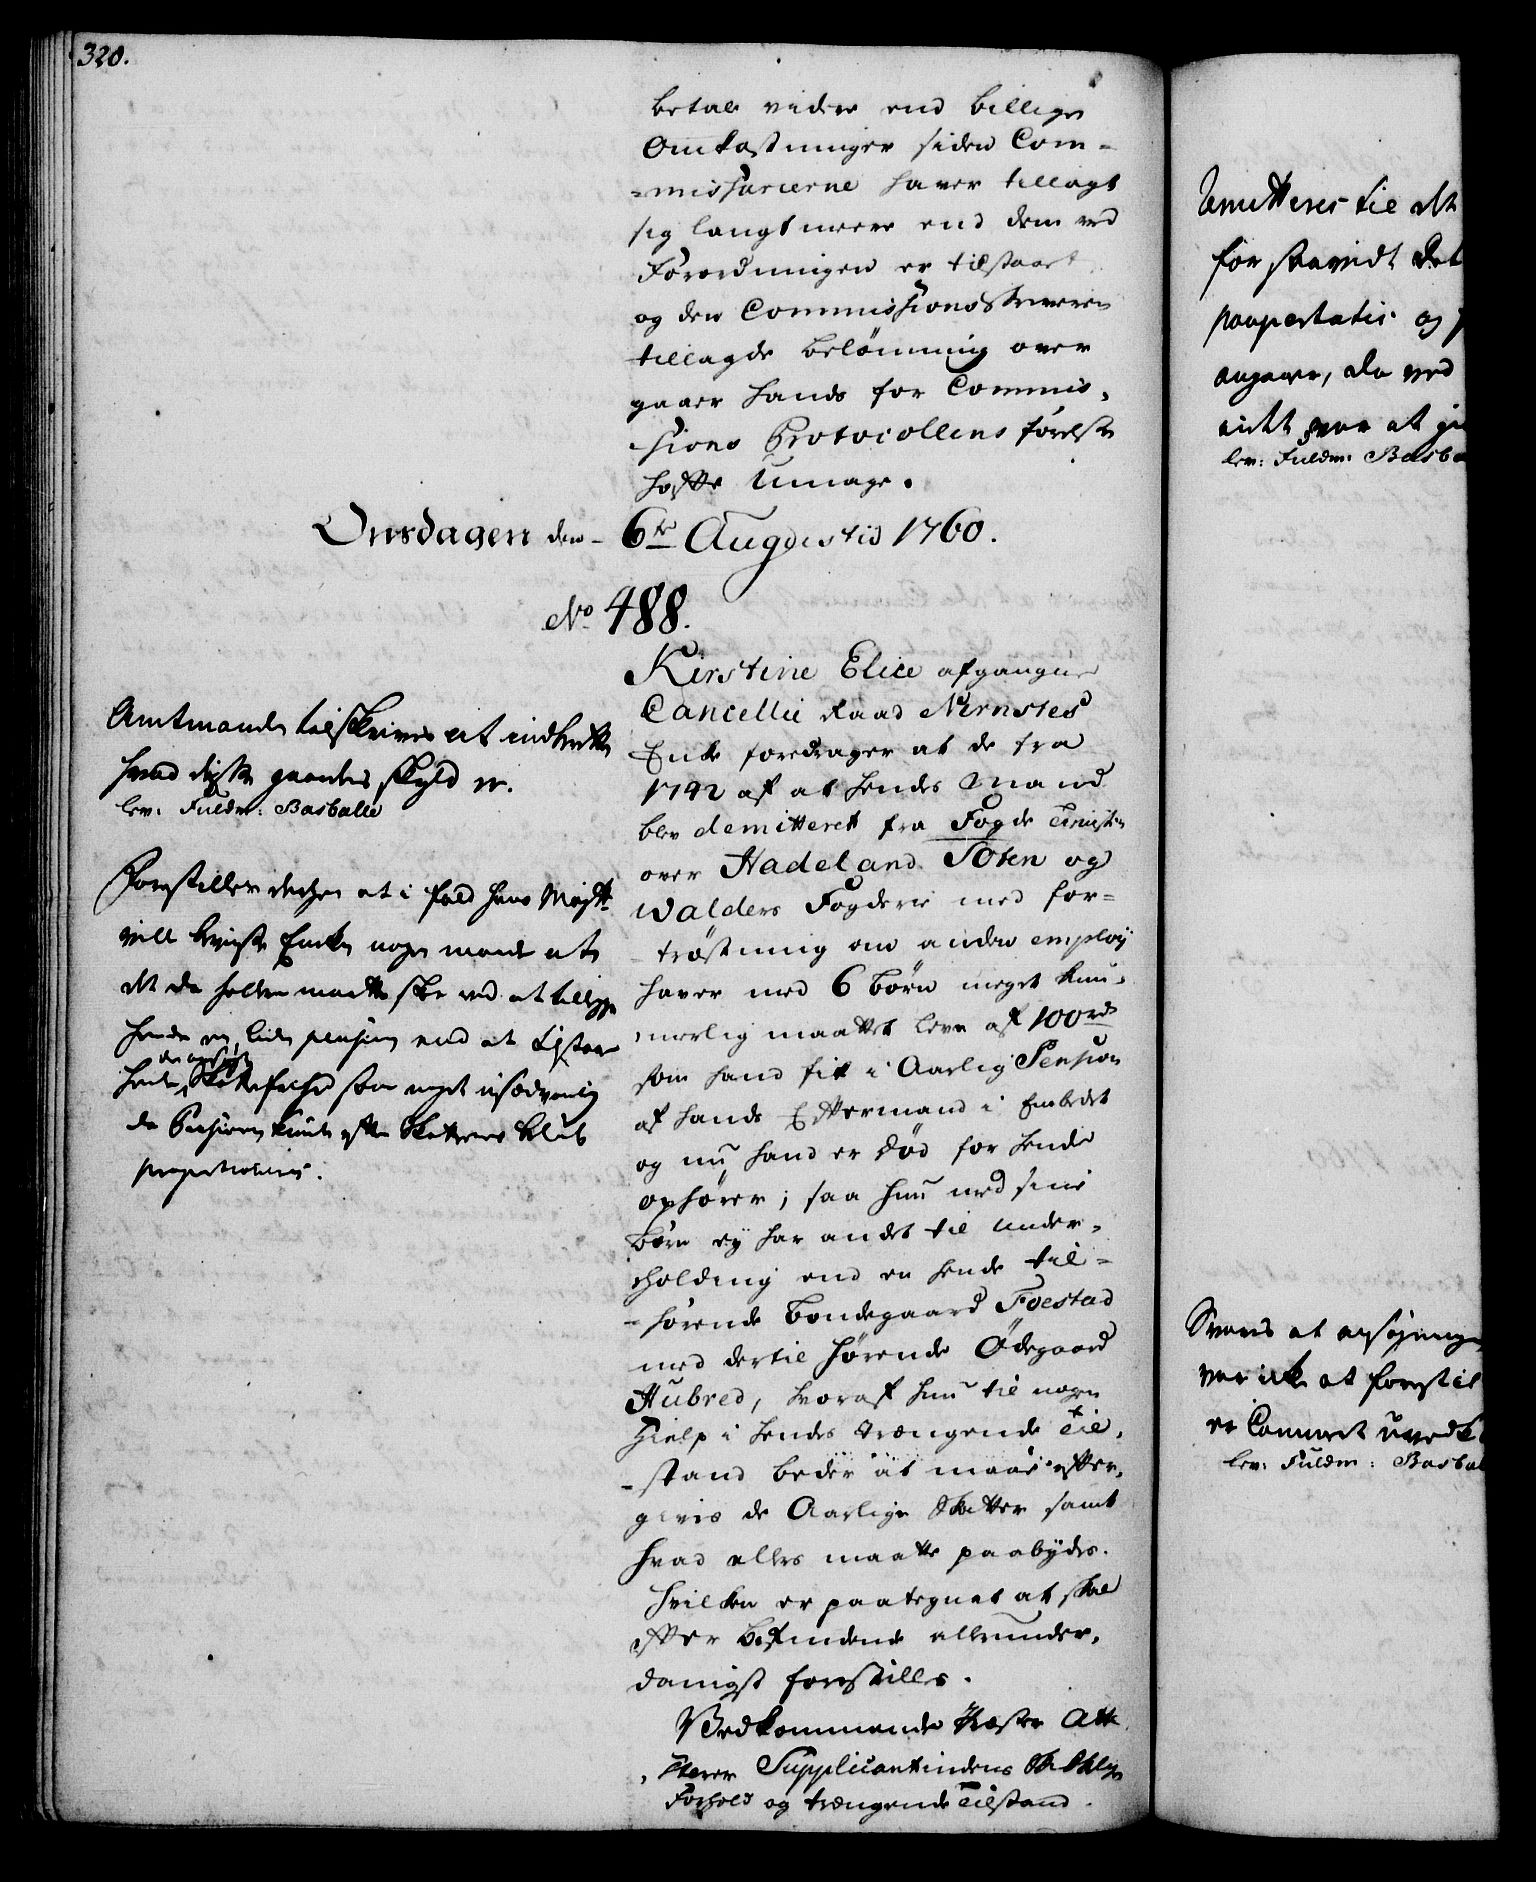 320.
betale videre end billige
Omkostninger siden Com-
-missarierne haver tillagt
sig langt meere end dem ved
Forordningen er tilstaaet
og den Commissions Skriveren
tillagde belönning over
gaaer hands for Commis,
sions Protocollens förelse
hafte Umage.
Onsdagen den 6te Augusti 1760.
No 488.
Kirstine Elice afgangne
Cancellie Raad Nernstes
Enke fordrager at de fra
1742 af at hendes Mand
blev demitteret fra Fogde Tienisten
over Hadeland Toten og
Walders Fogderie med for-
-tröstning om anden employ
haver med 6 börn meget kum,
merlig maattet leve af 100 rd
som hand fik i Aarlig Pension
af hands Eftermand i Embedet
og nu hand er död for hende
ophörer; saa hun med sine
börn ey har andet til under,
holding end en hende til-
-hörende bondegaard Foestad
med dertil hörende Ödegaard
Hubred, hvoraf hun til nogen
Hielp i hendes trængende Til,
-stand beder at maae efter,
givis de Aarlige Skatter samt
hvad ellers maatte paabydes.
hvilken er paategnet at skal
efter befindende allerunder,
danigst forestilles.
Vedkommende Præster Atte,
sterer Supplicantindens Skikkelige
Forhold og trængende Tilstand.
Amtmanden tilskrives at indberette
hvad disse gaarders skyld er.
lev: Fuldm: Basballe
Forestilles derhen at i fald hans Maytt
vill bevise Enken nogen naade at
det da heller maatte skee ved at tillegge
hende en liden pension end at tilstaae
hende den ansøgte Skattefrihed som noget usædvanlig
da Pensionen kunde efter Skatternes beløb
proportioneres.
remitteres til det
for saavidt det
paupertatis og
angaaer, da ved
intet var at
lev: Fuldm: Basba
Svares at ansøgningen
var ikke at forestil
er Cammeret uvedk
lev: Fuldm: Basbal